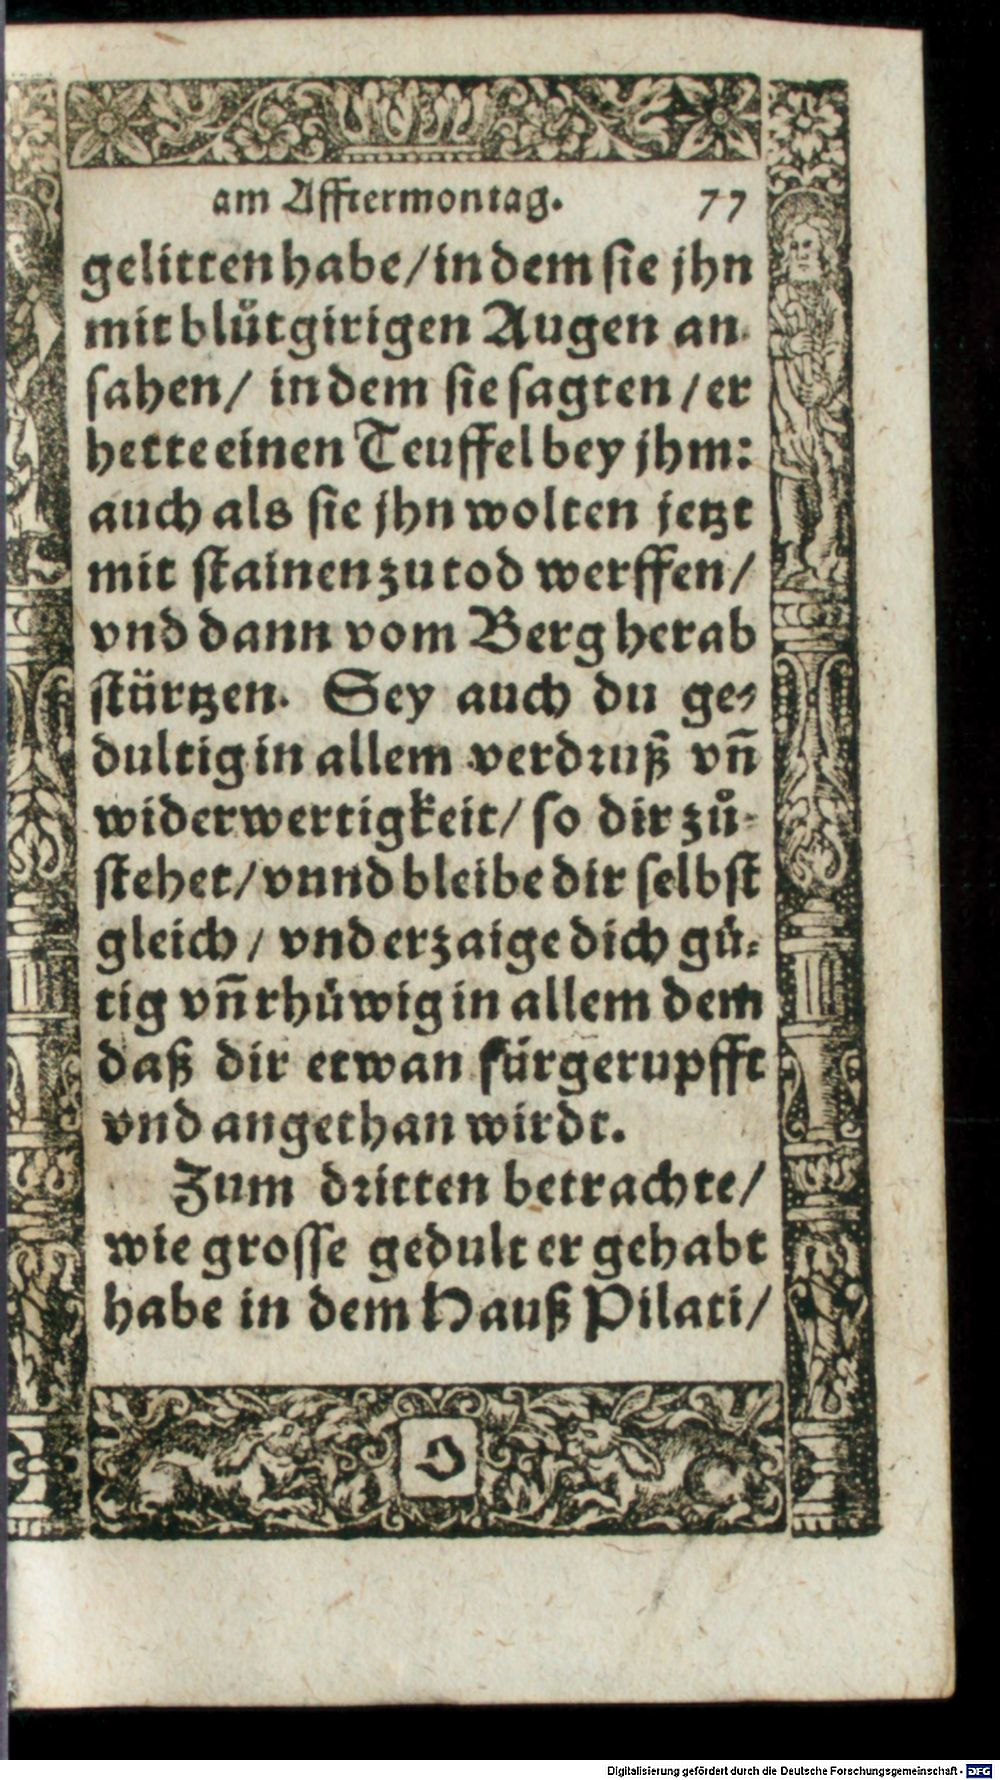 am Afftermontag. 77
gelitten habe/ in dem sie jhn
mit blůtgirigen Augen an-
sahen/ in dem sie sagten/ er
hette einen Teuffel bey jhm:
auch als sie jhn wolten jetzt
mit stainen zu tod werffen/
vnd dann vom Berg herab
stürtzen. Sey auch du ge-
dultig in allem verdruß vñ
widerwertigkeit/ so dir zů-
stehet/ vnnd bleibe dir selbst
gleich/ vnd erzaige dich gü-
tig vñ rhüwig in allem dem
daß dir etwan fürgerupfft
vnd angethan wirdt.
Zum dritten betrachte/
wie grosse gedult er gehabt
habe in dem Hauß Pilati/
Digitalisierung gefördert durch die Deutsche Forschungsgemeinschaft - DFG